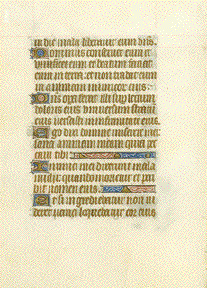 in die mala liberavit eum dns.
Dominus conservet eum et
vivificet eum et beatum faciat
eum in terra et non tradat eum
in animam eius
Dns opem ferat illi super lectum
doloris eius universum stratum
eius versasti in infirmitate eius.
Ego dixi domine miserere mei
sana animam meam quia pec
cavi tibi
Inimici mei dixerunt mala
michi quando morietur et peri
bit nomen eius.
Et si ingrediebatur ut vi
deret vana loquebatur cor eius